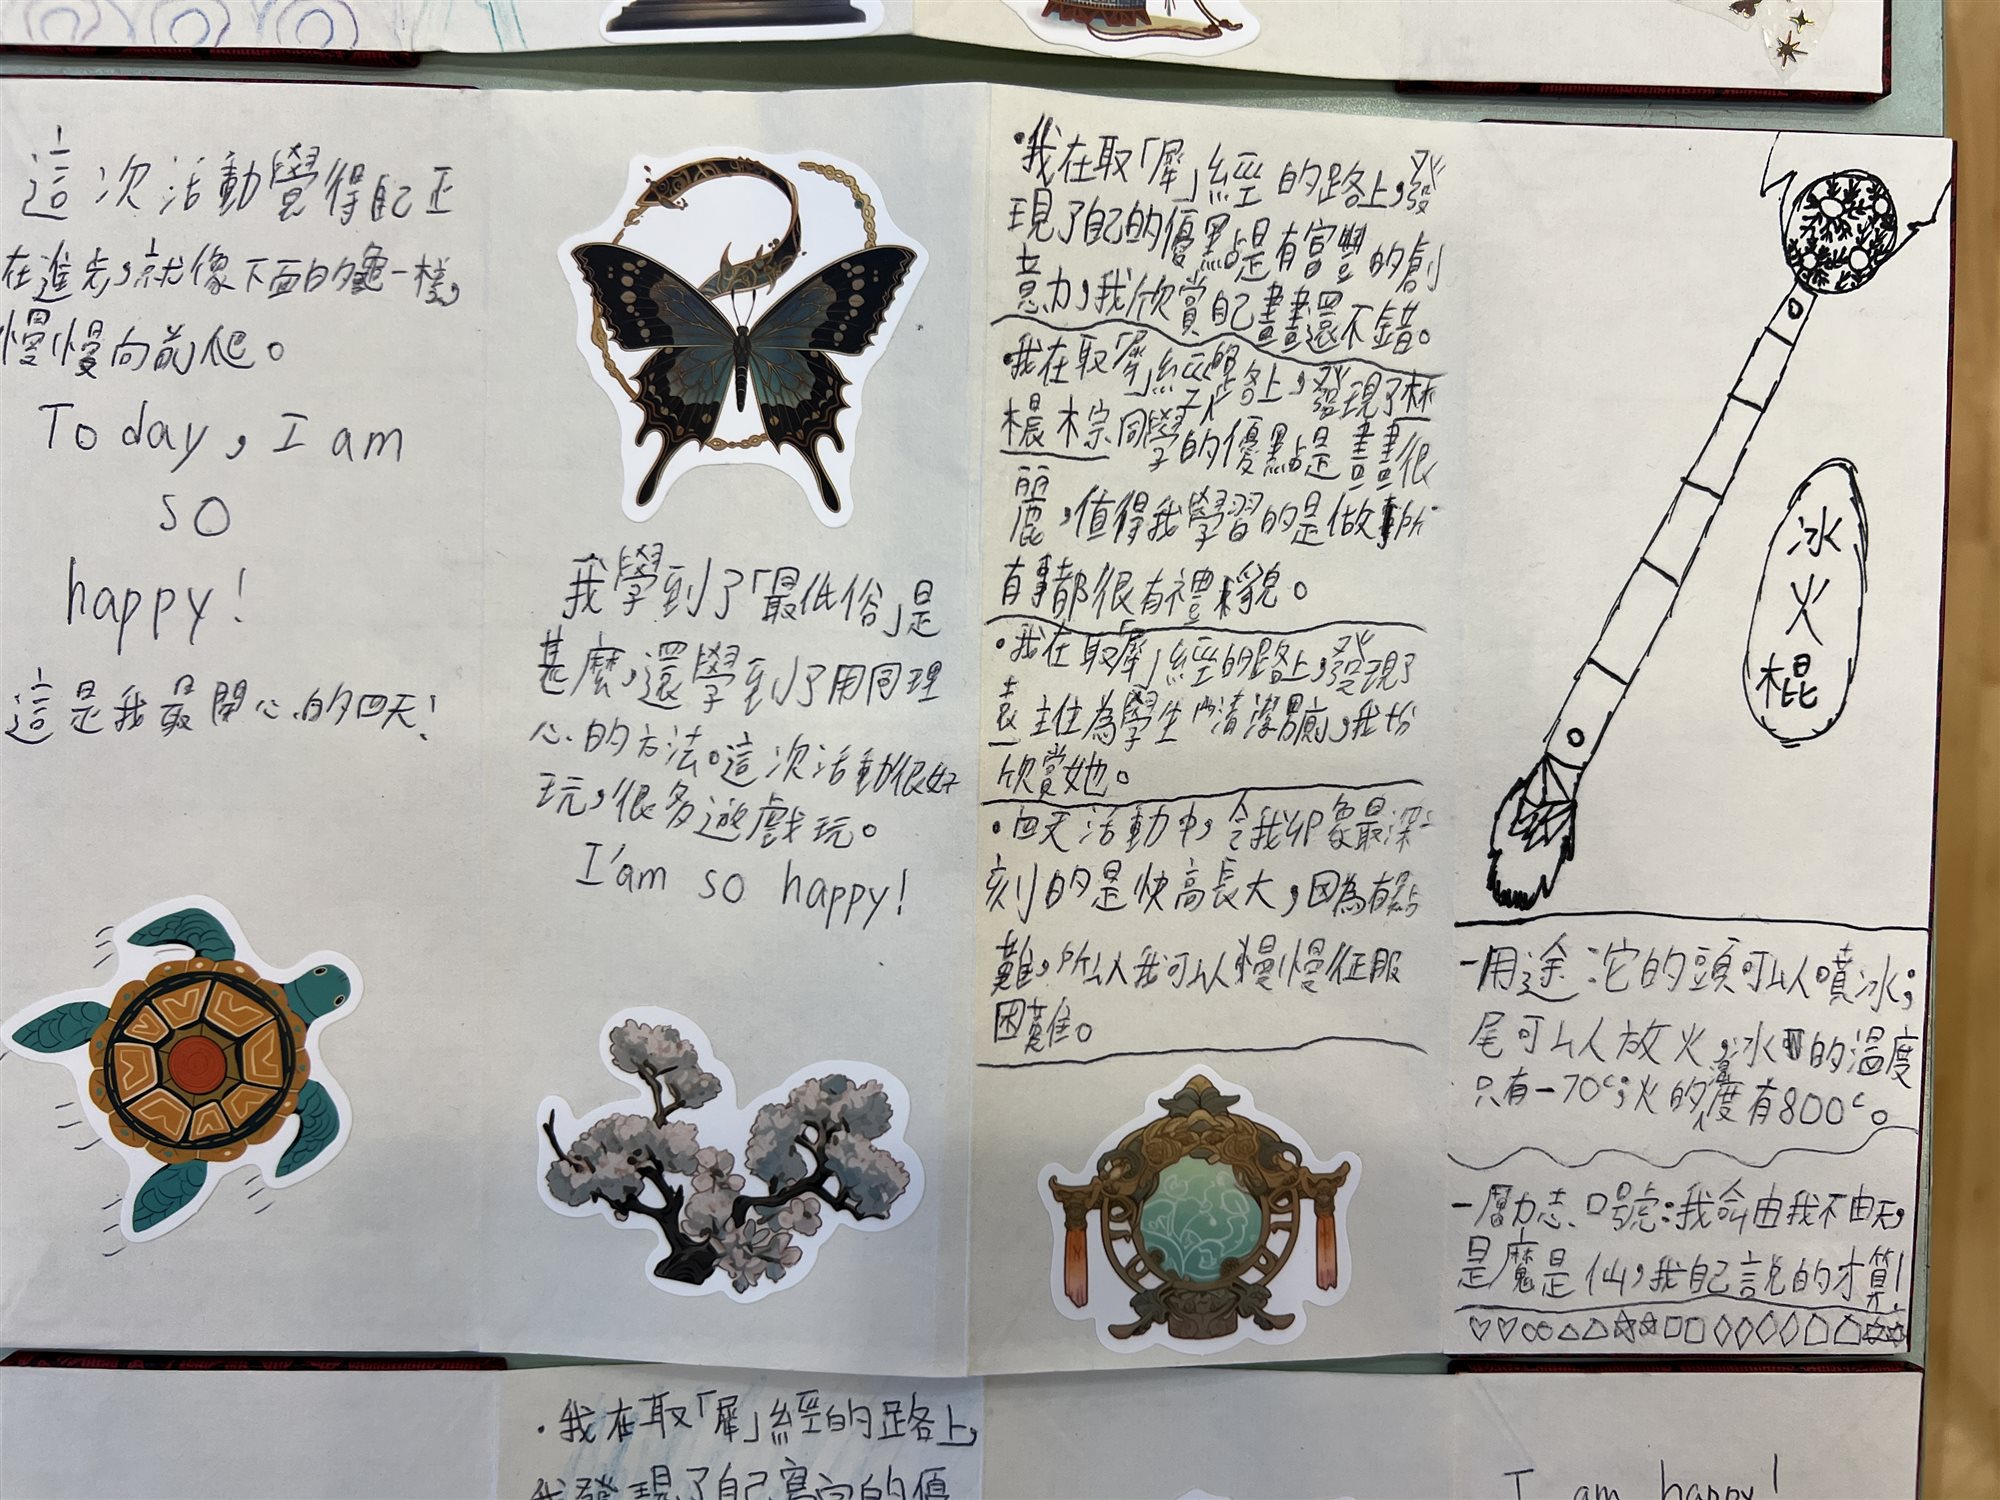 這次活動覺得自己正
在進步，就像下面的龜一樣，
慢慢向前爬。
Today, I am
so
happy!
這是我最開心的四天!
我學到了「最低俗」是
甚麼，還學到了用同理
心的方法。這次活動很好
玩，很多遊戲玩。
I'am so happy!
·我在取「犀」經的路上，發
現了自己的優點是有富豐的創
意力，我欣賞自己畫畫還不錯。
·我在取「犀」經的路上，發現了林
樣同學的優點是畫畫很
麗，值得我學習的是做事所
有事都很有禮貌。
·我在取「犀」經的路上，發現了
袁主任為學生們清潔男廁，我份
欣賞她。
·四天活動中，令我印象最深
刻的是快高長大，因為有點
難，所以我可以慢慢征服
困難。
冰
火
棍
-用途沱的頭可以噴冰；
尾可以放火，冰的溫度
只有-70c；火的溫度有800c。
-勵志口號：我命由我不由天，
是魔是仙，我自己說的才算!
·我在取「犀」經的路上，
我發現了自己寫字的優
I am happy!